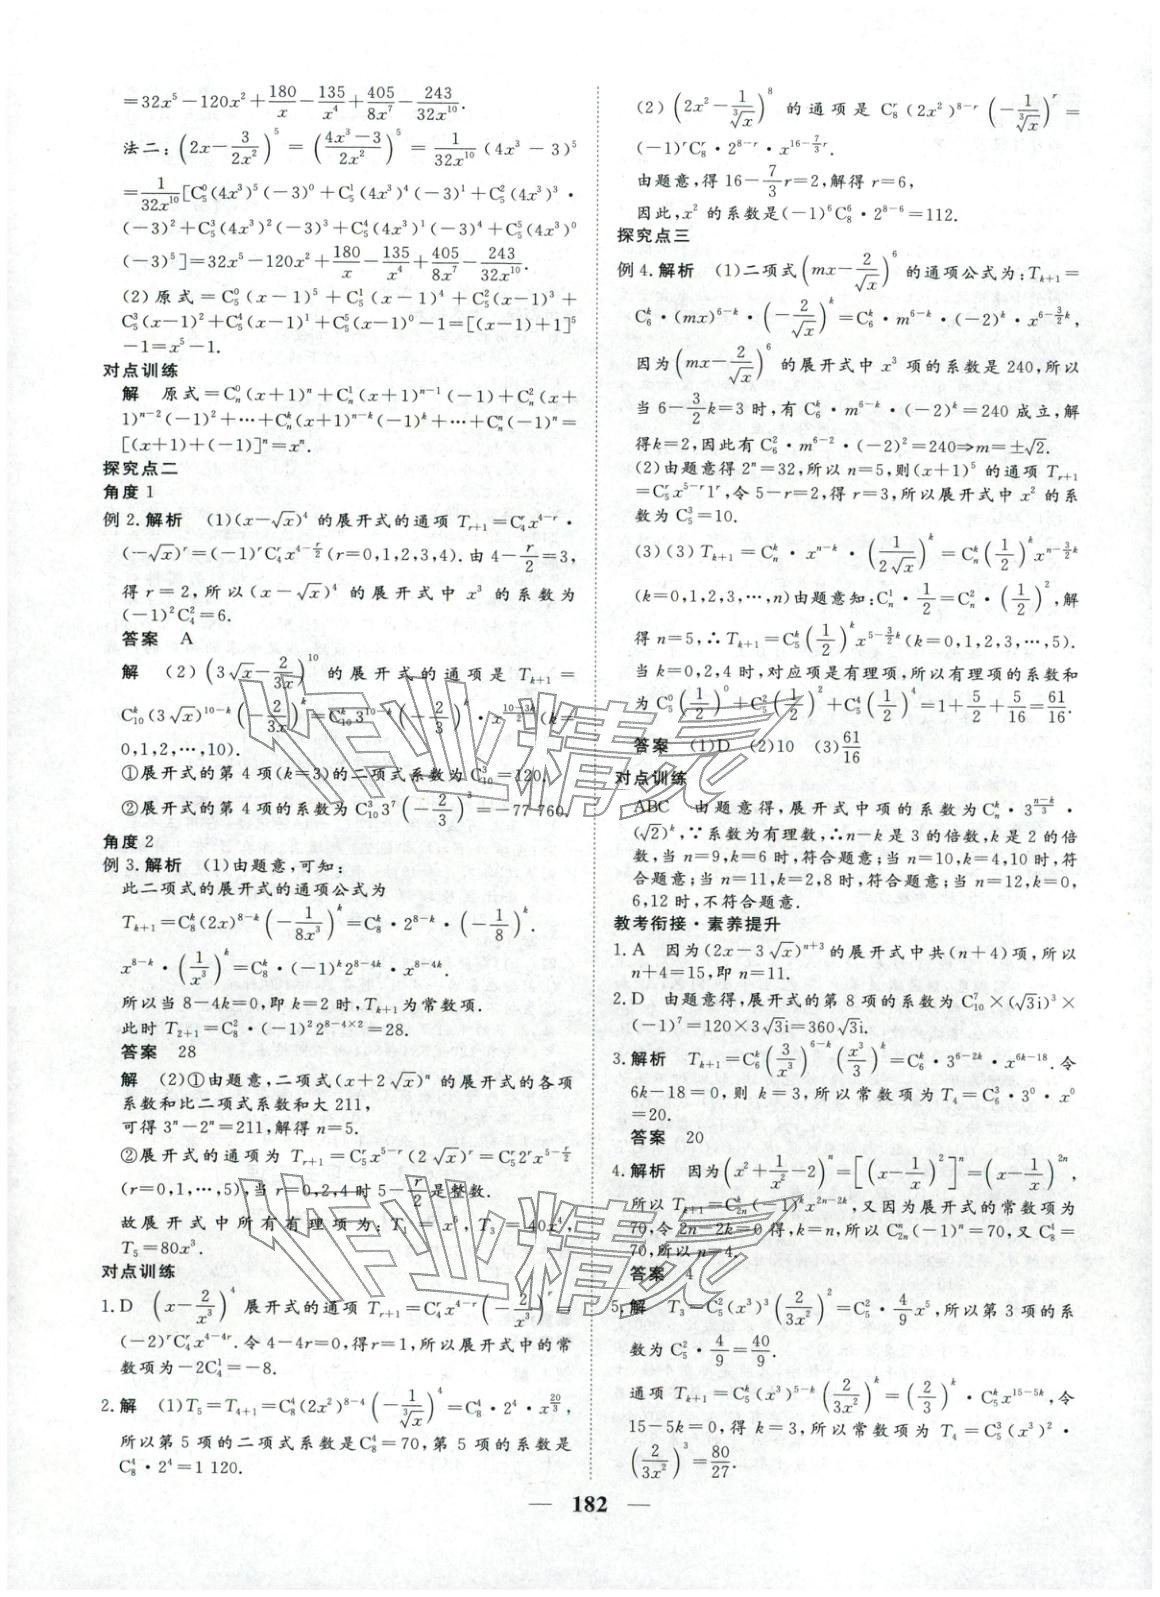 =32x⁵-120x²+180/x-135/x⁴+405/8x⁷-243/32x¹⁰.
法二：(2x-3/2x²)⁵=((4x³-3)/2x²)⁵=1/32x¹⁰(4x³-3)⁵
=1/32x¹⁰[C₅⁰(4x³)⁵(-3)⁰+C₅¹(4x³)⁴(-3)¹+C₅²(4x³)³·
(-3)²+C₅³(4x³)²(-3)³+C₅⁴(4x³)¹(-3)⁴+C₅⁵(4x³)⁰
(-3)⁵]=32x⁵-120x²+180/x-135/x⁴+405/8x⁷-243/32x¹⁰.
(2)原式=C₅⁰(x-1)⁵+C₅¹(x-1)⁴+C₅²(x-1)³+
C₅³(x-1)²+C₅⁴(x-1)¹+C₅⁵(x-1)⁰-1=[(x-1)+1]⁵
-1=x⁵-1.
对点训练
解 原式=Cₙ⁰(x+1)ⁿ+Cₙ¹(x+1)ⁿ⁻¹(-1)+Cₙ²(x+
1)ⁿ⁻²(-1)²+…+Cₙᵏ(x+1)ⁿ⁻ᵏ(-1)ᵏ+…+Cₙⁿ(-1)ⁿ=
[(x+1)+(-1)]ⁿ=xⁿ.
探究点二
角度1
例2.解析 (1)(x-√x)⁴的展开式的通项 Tᵣ₊₁=C₄ʳx⁴⁻ʳ·
(-√x)ʳ=(-1)ʳC₄ʳx^(4-r/2)(r=0,1,2,3,4).由4-r/2=3,
得r=2,所以(x-√x)⁴的展开式中x³的系数为
(-1)²C₄²=6.
答案 A
解 (2)(3√x-2/3x)¹⁰的展开式的通项是Tₖ₊₁=
C₁₀ᵏ(3√x)¹⁰⁻ᵏ(-2/3x)ᵏ=C₁₀ᵏ3¹⁰⁻ᵏ(-2/3)ᵏ·x^((10-3k)/2)(k=
0,1,2,…,10).
①展开式的第4项(k=3)的二项式系数为C₁₀³=120.
②展开式的第4项的系数为C₁₀³3⁷(-2/3)³=-77 760.
角度2
例3.解析 (1)由题意,可知：
此二项式的展开式的通项公式为
Tₖ₊₁=C₈ᵏ(2x)⁸⁻ᵏ(-1/8x³)ᵏ=C₈ᵏ·2⁸⁻ᵏ·(-1/8)ᵏ·
x⁸⁻ᵏ·(1/x³)ᵏ=C₈ᵏ·(-1)ᵏ2⁸⁻⁴ᵏ·x⁸⁻⁴ᵏ.
所以当8-4k=0,即k=2时,Tₖ₊₁为常数项.
此时T₂₊₁=C₈²·(-1)²2⁸⁻⁴ˣ²=28.
答案 28
解 (2)①由题意,二项式(x+2√x)ⁿ的展开式的各项
系数和比二项式系数和大211,
可得3ⁿ-2ⁿ=211,解得n=5.
②展开式的通项为Tᵣ₊₁=C₅ʳx⁵⁻ʳ(2√x)ʳ=C₅ʳ2ʳx^(5-r/2)
(r=0,1,…,5),当r=0,2,4时5-r/2是整数.
故展开式中所有有理项为：T₁=x⁵,T₃=40x⁴,
T₅=80x³.
对点训练
1.D (x-2/x³)⁴展开式的通项Tᵣ₊₁=C₄ʳx⁴⁻ʳ(-2/x³)ʳ=
(-2)ʳC₄ʳx⁴⁻⁴ʳ.令4-4r=0,得r=1,所以展开式中的常
数项为-2C₄¹=-8.
2.解 (1)T₅=T₄₊₁=C₈⁴(2x²)⁸⁻⁴(-1/∛x)⁴=C₈⁴·2⁴·x^(20/3),
所以第5项的二项式系数是C₈⁴=70,第5项的系数是
C₈⁴·2⁴=1 120.
(2)(2x²-1/∛x)⁸的通项是C₈ʳ(2x²)⁸⁻ʳ(-1/∛x)ʳ=
(-1)ʳC₈ʳ·2⁸⁻ʳ·x^(16-7/3r)
由题意,得16-7/3r=2,解得r=6,
因此,x²的系数是(-1)⁶C₈⁶·2⁸⁻⁶=112.
探究点三
例4.解析 (1)二项式(mx-2/√x)⁶的通项公式为：Tₖ₊₁=
C₆ᵏ·(mx)⁶⁻ᵏ·(-2/√x)ᵏ=C₆ᵏ·m⁶⁻ᵏ·(-2)ᵏ·x^(6-3/2k),
因为(mx-2/√x)⁶的展开式中x³项的系数是240,所以
当6-3/2k=3时,有C₆ᵏ·m⁶⁻ᵏ·(-2)ᵏ=240成立,解
得k=2,因此有C₆²·m⁶⁻²·(-2)²=240⇒m=±√2.
(2)由题意得2ⁿ=32,所以n=5,则(x+1)⁵的通项Tᵣ₊₁
=C₅ʳx⁵⁻ʳ1ʳ,令5-r=2,得r=3,所以展开式中x²的系
数为C₅³=10.
(3)(3)Tₖ₊₁=Cₙᵏ·xⁿ⁻ᵏ·(1/2√x)ᵏ=Cₙᵏ(1/2)ᵏx^(n-3/2k)
(k=0,1,2,3,…,n)由题意知：Cₙ¹·1/2=Cₙ²·(1/2)²,解
得n=5,∴Tₖ₊₁=C₅ᵏ(1/2)ᵏx^(5-3/2k)(k=0,1,2,3,…,5).
当k=0,2,4时,对应项是有理项,所以有理项的系数和
为C₅⁰(1/2)⁰+C₅²(1/2)²+C₅⁴(1/2)⁴=1+5/2+5/16=61/16.
答案 (1)D (2)10 (3)61/16
对点训练
ABC 由题意得,展开式中项的系数为Cₙᵏ·3^((n-k)/3)·
(√2)ᵏ,∵系数为有理数,∴n-k是3的倍数,k是2的倍
数,当n=9,k=6时,符合题意;当n=10,k=4,10时,符
合题意;当n=11,k=2,8时,符合题意;当n=12,k=0,
6,12时,不符合题意.
教考衔接·素养提升
1.A 因为(2x-3√x)ⁿ⁺³的展开式中共(n+4)项,所以
n+4=15,即n=11.
2.D 由题意得,展开式的第8项的系数为C₁₀⁷×(√3i)³×
(-1)⁷=120×3√3i=360√3i.
3.解析 Tₖ₊₁=C₆ᵏ(3/x³)⁶⁻ᵏ(x³/3)ᵏ=C₆ᵏ·3⁶⁻²ᵏ·x⁶ᵏ⁻¹⁸.令
6k-18=0,则k=3,所以常数项为T₄=C₆³·3⁰·x⁰
=20.
答案 20
4.解析 因为(x²+1/x²-2)ⁿ=[(x-1/x)²]ⁿ=(x-1/x)²ⁿ,
所以Tₖ₊₁=C₂ₙᵏ(-1)ᵏx²ⁿ⁻²ᵏ,又因为展开式的常数项为
70,令2n-2k=0得k=n,所以C₂ₙⁿ(-1)ⁿ=70,又C₈⁴=
70,所以n=4.
答案 4
5.解 T₃=C₅²(x³)³(2/3x²)²=C₅²·4/9x⁵,所以第3项的系
数为C₅²·4/9=40/9.
通项Tₖ₊₁=C₅ᵏ(x³)⁵⁻ᵏ(2/3x²)ᵏ=(2/3)ᵏ·C₅ᵏx¹⁵⁻⁵ᵏ,令
15-5k=0,得k=3,所以常数项为T₄=C₅³(x³)²·
(2/3x²)³=80/27.
— 182 —
作业精灵
作业精灵